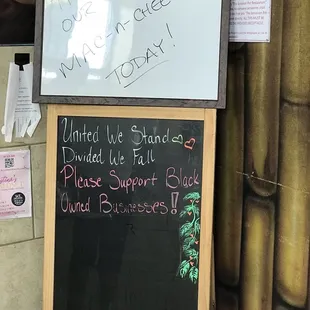 OUR
MAC-N-CHEE
TODAY!
United We Stand
Divided We Fall
Please Support Black
Owned Businesses!